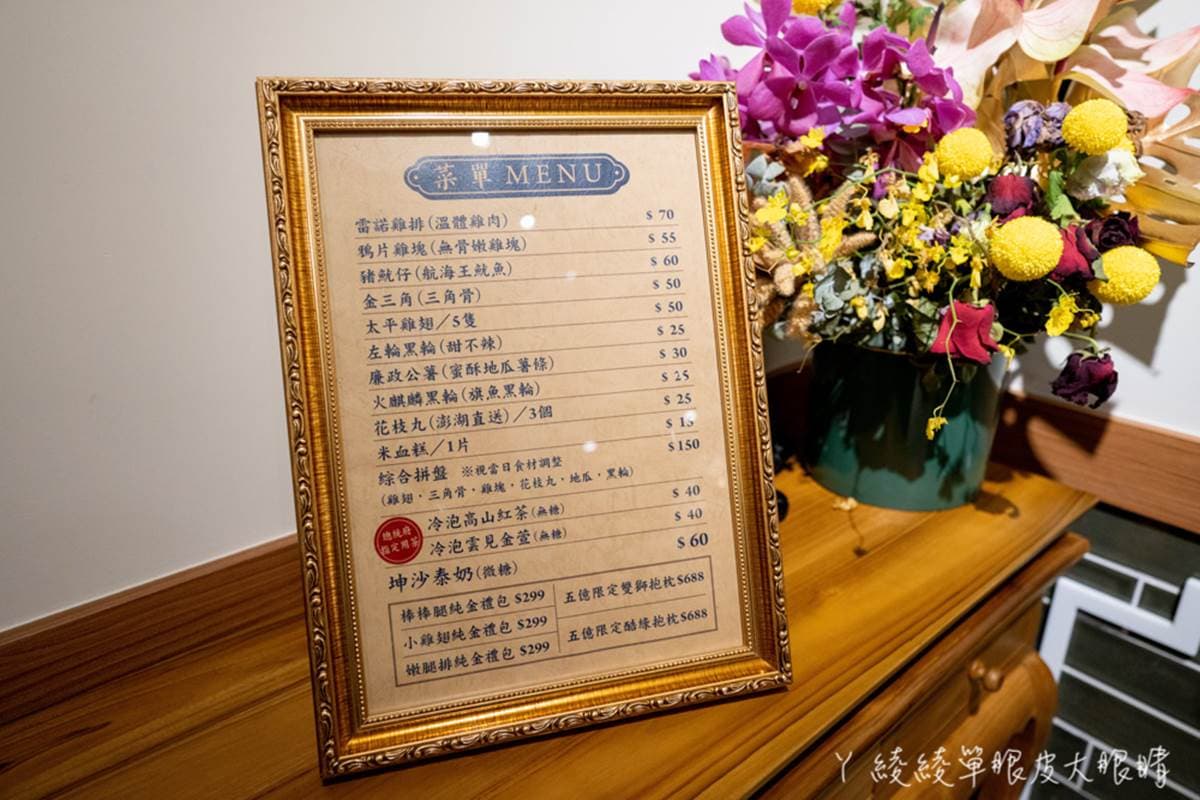 菜單 MENU
雷諾雞排(溫體雞肉) $ 70
鴉片雞塊(無骨嫩雞塊) $ 55
豬魷仔(航海王魷魚) $ 60
金三角(三角骨) $ 50
太平雞翅／5隻 $ 50
左輪黑輪(甜不辣) $ 25
廉政公薯(蜜酥地瓜薯條) $ 30
火麒麟黑輪(旗魚黑輪) $ 25
花枝丸(澎湖直送)／3個 $ 25
米血糕／1片 $ 15
綜合拼盤 ※視當日食材調整 $150
(雞翅．三角骨．雞塊．花枝丸．地瓜．黑輪)
總統府
指定用茶
冷泡高山紅茶(無糖) $ 40
冷泡雲見金萱(無糖) $ 40
坤沙泰奶(微糖) $ 60
棒棒腿純金禮包 $299
小雞翅純金禮包 $299
嫩腿排純金禮包 $299
五億限定雙獅抱枕$688
五億限定酷綠抱枕$688
ㄚ綾綾單眼皮大眼睛